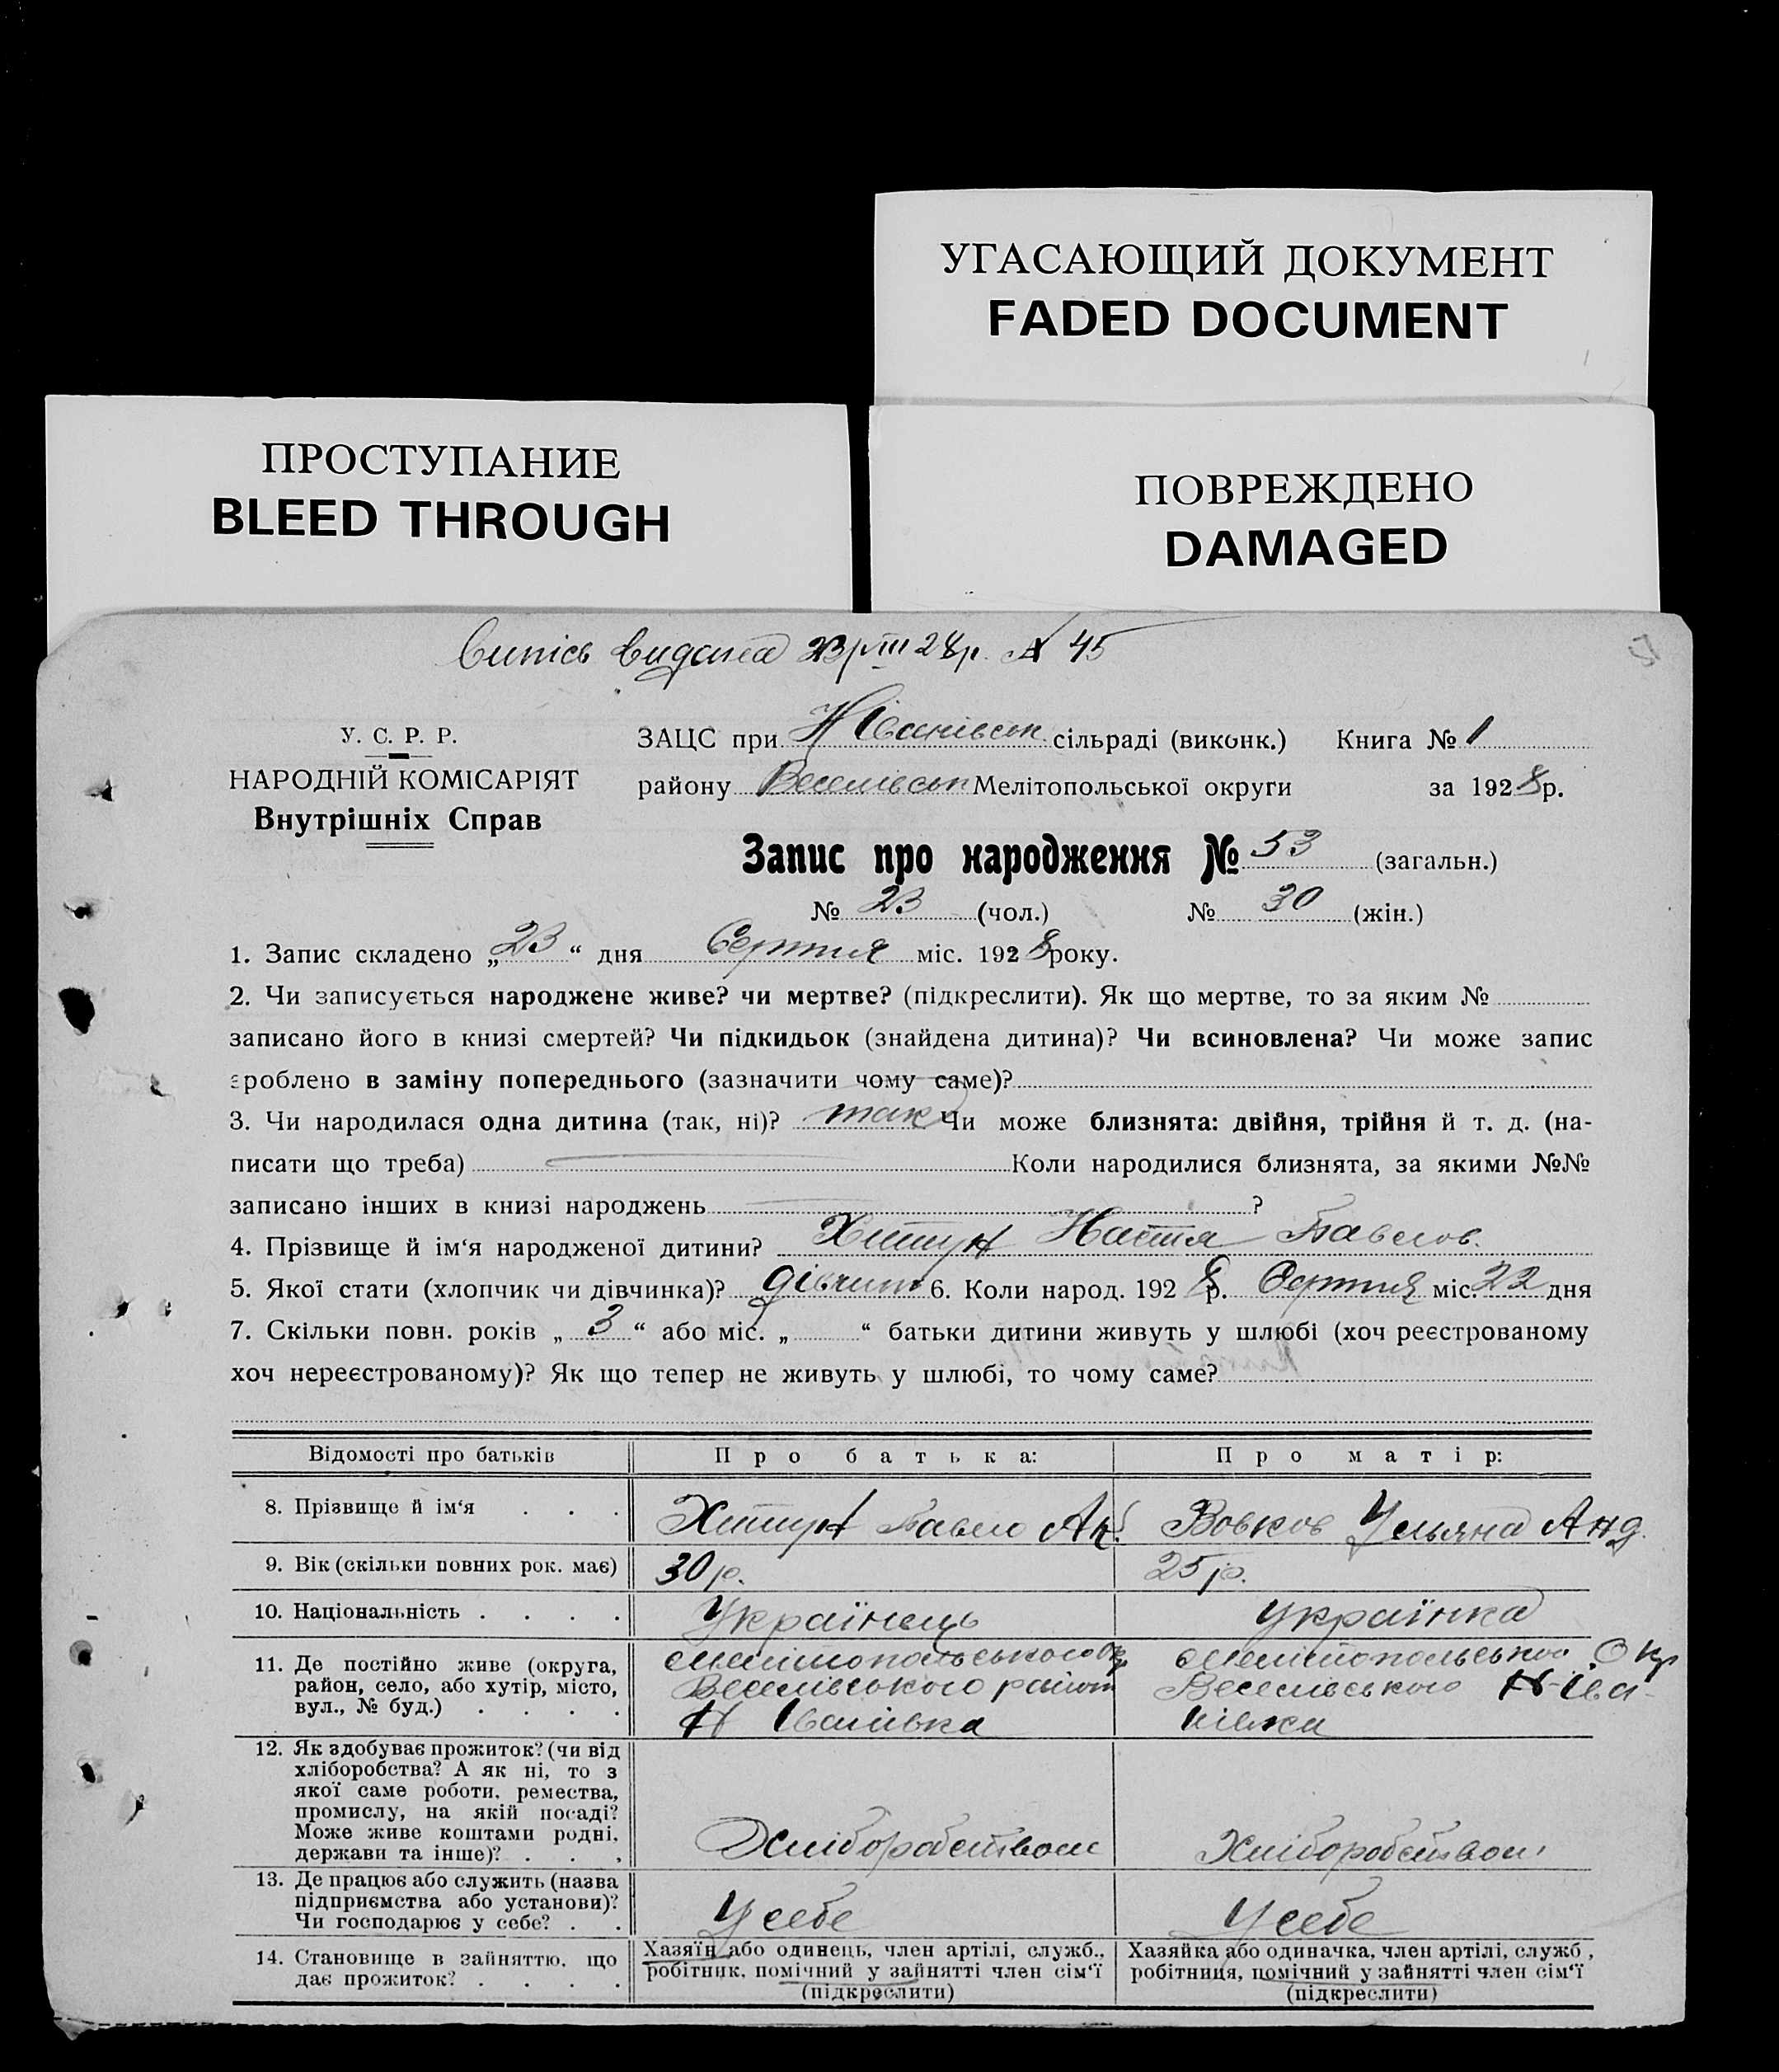 УГАСАЮЩИЙ ДОКУМЕНТ
FADED DOCUMENT
ПРОСТУПАНИЕ
BLEED THROUGH
ПОВРЕЖДЕНО
DAMAGED
Випісь видана 23/VIII 28р. № 45
У. С. Р. Р.
НАРОДНІЙ КОМІСАРІЯТ
Внутрішніх Справ
ЗАЦС при Н Іванівськ. сільраді (виконк.) Книга № 1
району Веселівськ Мелітопольської округи за 1928р.
Запис про народження № 53 (загальн.)
№ 23 (чол.) № 30 (жін.)
1. Запис складено „23“ дня Серпня міс. 1928 року.
2. Чи записується народжене живе? чи мертве? (підкреслити). Як що мертве, то за яким №
записано його в книзі смертей? Чи підкидьок (знайдена дитина)? Чи всиновлена? Чи може запис
зроблено в заміну попереднього (зазначити чому саме)?
3. Чи народилася одна дитина (так, ні)? так Чи може близнята: двійня, трійня й т. д. (на-
писати що треба) Коли народилися близнята, за якими №№
записано інших в книзі народжень ?
4. Прізвище й ім‘я народженої дитини? Хитун Настя Павлов.
5. Якої стати (хлопчик чи дівчинка)? дівчин 6. Коли народ. 1928 р. Серпня міс. 22 дня
7. Скільки повн. років „ 3 “ або міс. „ “ батьки дитини живуть у шлюбі (хоч реєстрованому
хоч нереєстрованому)? Як що тепер не живуть у шлюбі, то чому саме?
Відомості про батьків Про батька: Про матір:
8. Прізвище й ім‘я . . . Хитун Павло Вовков Ульяна Анд.
9. Вік (скільки повних рок. має) 30 р. 25 р.
10. Національність . . . . Українець Українка
11. Де постійно живе (округа,
район, село, або хутір, місто,
вул., № буд.) . . . .
Мелітопольського Окр
Веселівського район
Н Іванівка
Мелітопольської Окр
Веселівського Н-Іва-
нівка
12. Як здобуває прожиток? (чи від
хліборобства? А як ні, то з
якої саме роботи, ремества,
промислу, на якій посаді?
Може живе коштами родні,
держави та інше)? . . .
Хліборобством
Хліборобством
13. Де працює або служить (назва
підприємства або установи)?
Чи господарює у себе? . .
У себе
У себе
14. Становище в зайняттю, що
дає прожиток? . . . .
Хазяїн або одинець, член артілі, служб.,
робітник, помічний у зайнятті член сім‘ї
(підкреслити)
Хазяйка або одиначка, член артілі, служб,
робітниця, помічний у зайнятті член сім‘ї
(підкреслити)